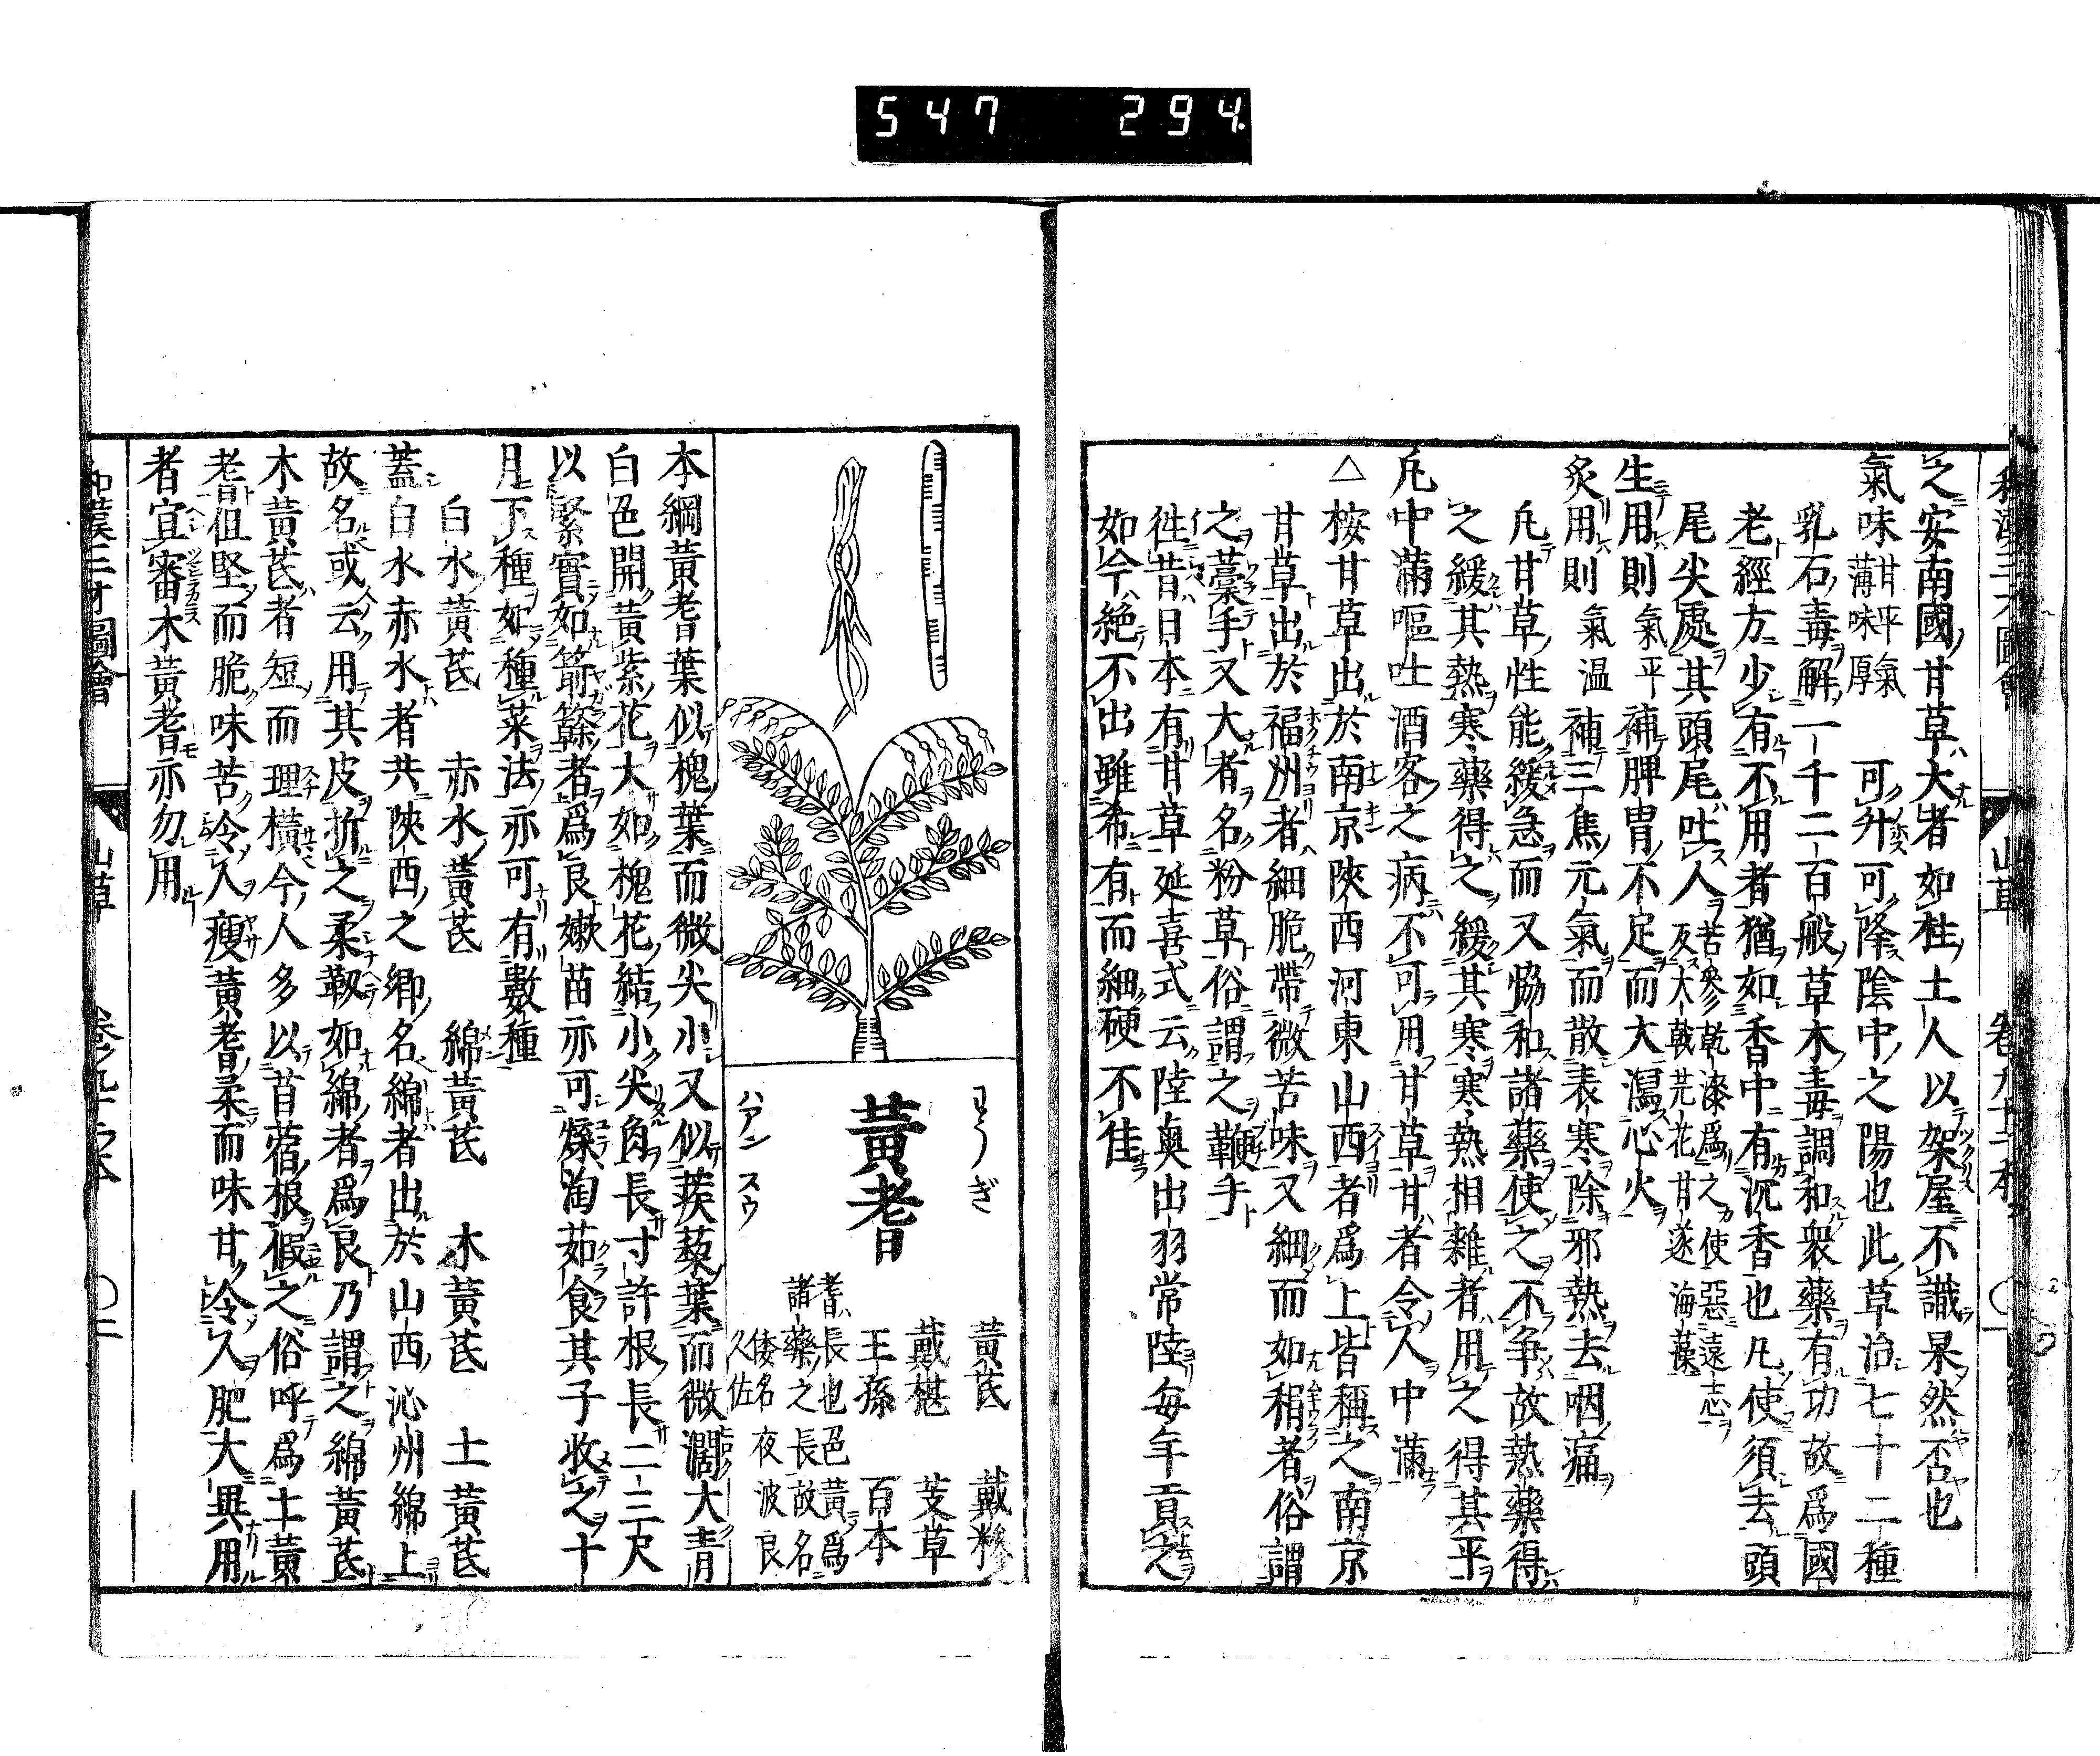 547 294
之安南國甘草大者如柱土人以架屋不識杲然否也
氣味 甘平氣薄味厚 可升可降陰中之陽也此草治七十二種
乳石毒解一千二百般草木毒調和衆藥有功故爲國
老經方少有不用者猶如香中有沉香也凡使須去頭
尾尖處其頭尾吐人 苦參乾漆爲之使惡遠志反大戟芫花甘遂海藻
生用則 氣平 補脾胃不足而大瀉心火
炙用則 氣温 補三焦元氣而散表寒除邪熱去咽痛
凡甘草性能緩急而又協和諸藥使之不争故熱藥得
之緩其熱寒藥得之緩其寒寒熱相雜者用之得其平
凡中滿嘔吐酒客之病不可用甘草甘者令人中滿
△ 桉甘草出於南京陝西河東山西者爲上皆稱之南京
甘草出於福州者細脆帶微苦味又細而如稍者俗謂
之藁手又大者名粉草俗謂之鞭手
徃昔日本有甘草延喜式云陸奥出羽常陸毎年貢之
如今絶不出雖希有而細硬不佳
わうぎ
黃耆
ハアン スウ
黃芪 戴糝
戴椹 芰草
王孫 百本
耆長也色黃爲
諸藥之長故名
倭名夜波良
久佐
本綱黃耆葉似槐葉而微尖小又似蒺蔾葉而微濶大青
白色開黃紫花大如槐花結小尖角長寸許根長二三尺
以緊實如箭簳者爲良嫰苗亦可煠淘茹食其子收之十
月下種如種菜法亦可有數種
白水黃芪 赤水黃芪 綿黃芪 木黃芪 土黃芪
蓋白水赤水者共陝西之郷名綿者出於山西沁州綿上
故名或云用其皮折之柔靱如綿者爲良乃謂之綿黃芪
木黃芪者短而理橫今人多以苜蓿根假之俗呼爲土黃
耆但堅而脆味苦令人瘦黃耆柔而味甘令人肥大異用
者宜審木黃耆亦勿用
和漢三才圖會 山草 〇二